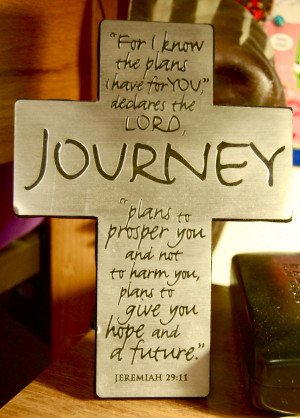 "For I know
the plans
I have for YOU,"
declares the
LORD,
JOURNEY
"plans to
prosper you
and not
to harm you,
plans to
give you
hope and
a future."
JEREMIAH 29:11